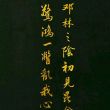 邓林之阴初见昆仑
惊鸿一瞥乱我心